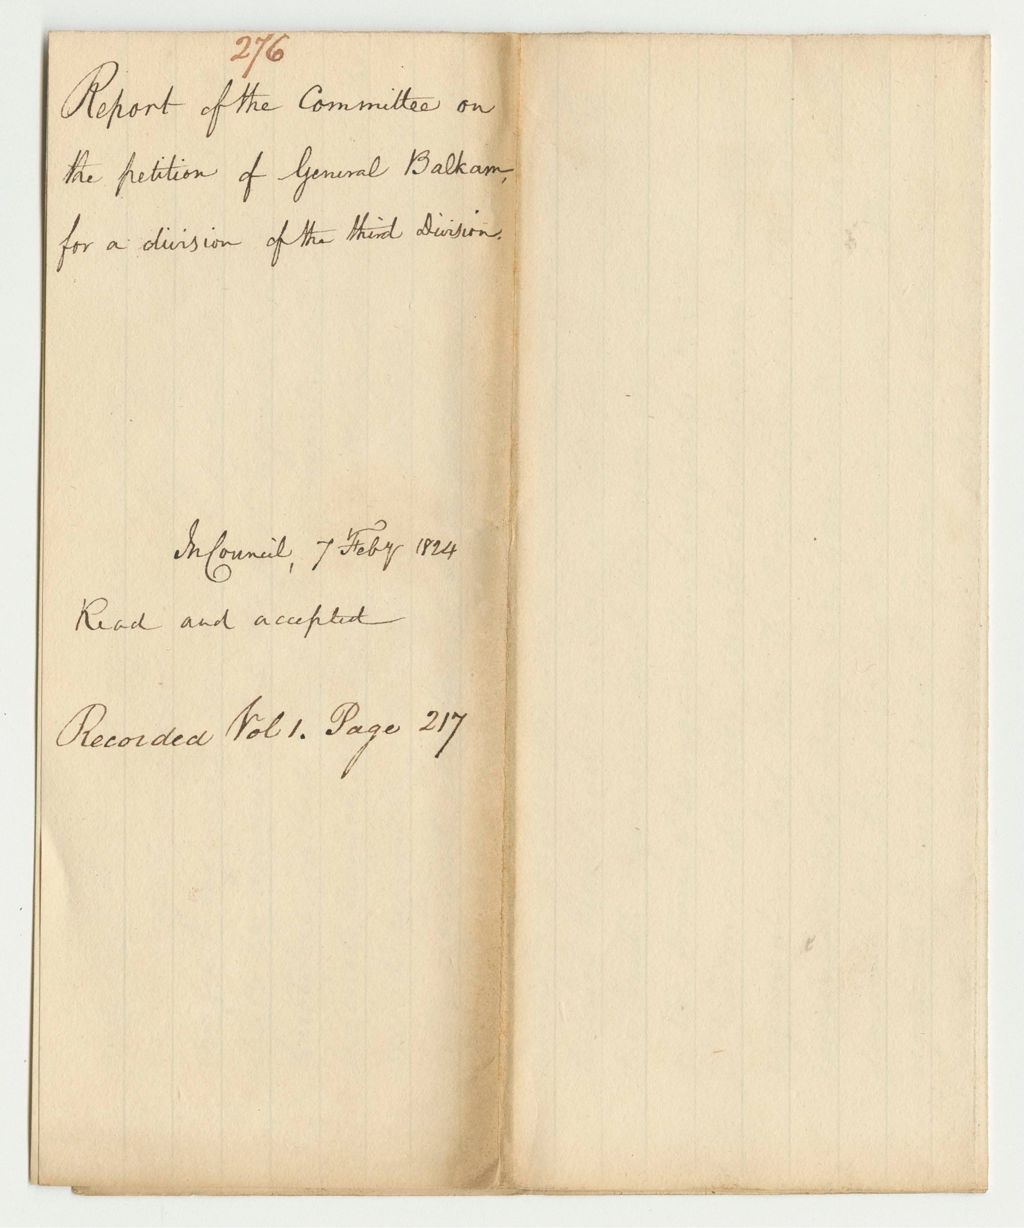 276
Report of the Committee on
the petition of General Balkam,
for a division of the third Division.
In Council, 7 Feby 1824
Read and accepted
Recorded Vol 1. Page 217